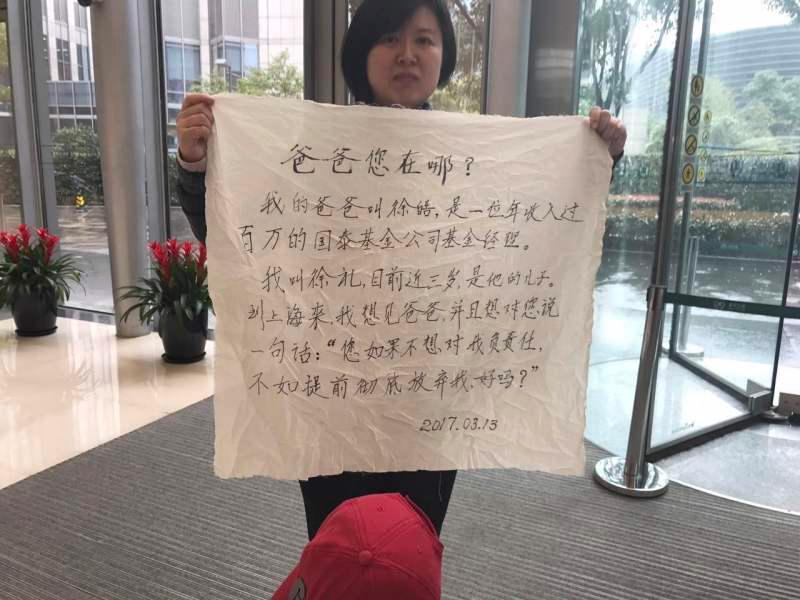 爸爸您在哪？
我的爸爸叫徐皓，是一位年收入过
百万的国泰基金公司基金经理。
我叫徐礼，目前近三岁，是他的儿子。
到上海来，我想见爸爸，并且想对您说
一句话：“您如果不想对我负责任，
不如提前彻底放弃我，好吗？”
2017.03.13